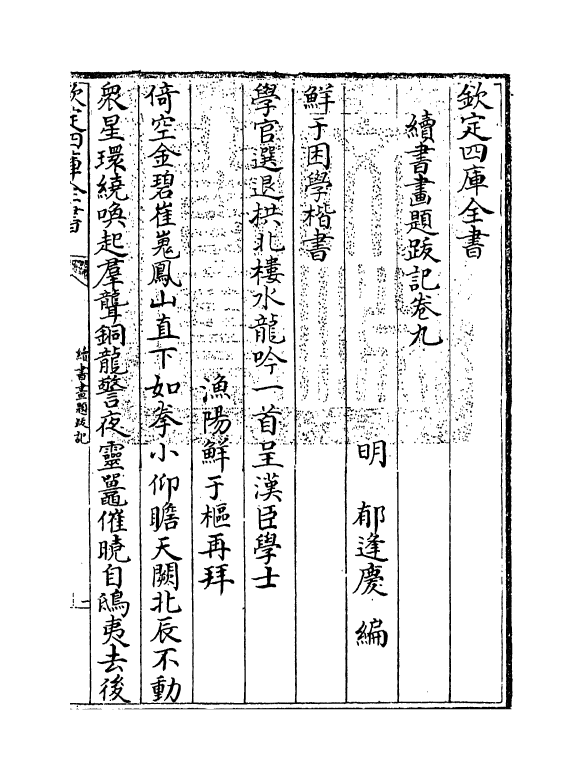 欽定四庫全書
續書畫題跋記卷九
明 郁逢慶 編
鮮于困學楷書
學官選退拱北樓水龍吟一首呈漢臣學士
漁陽鮮于樞再拜
倚空金碧崔嵬鳳山直下如拳小仰瞻天闕北辰不動
衆星環繞喚起羣聾銅龍警夜靈鼉催曉自鴟夷去後
欽定四庫全書
續書畫題跋記
一